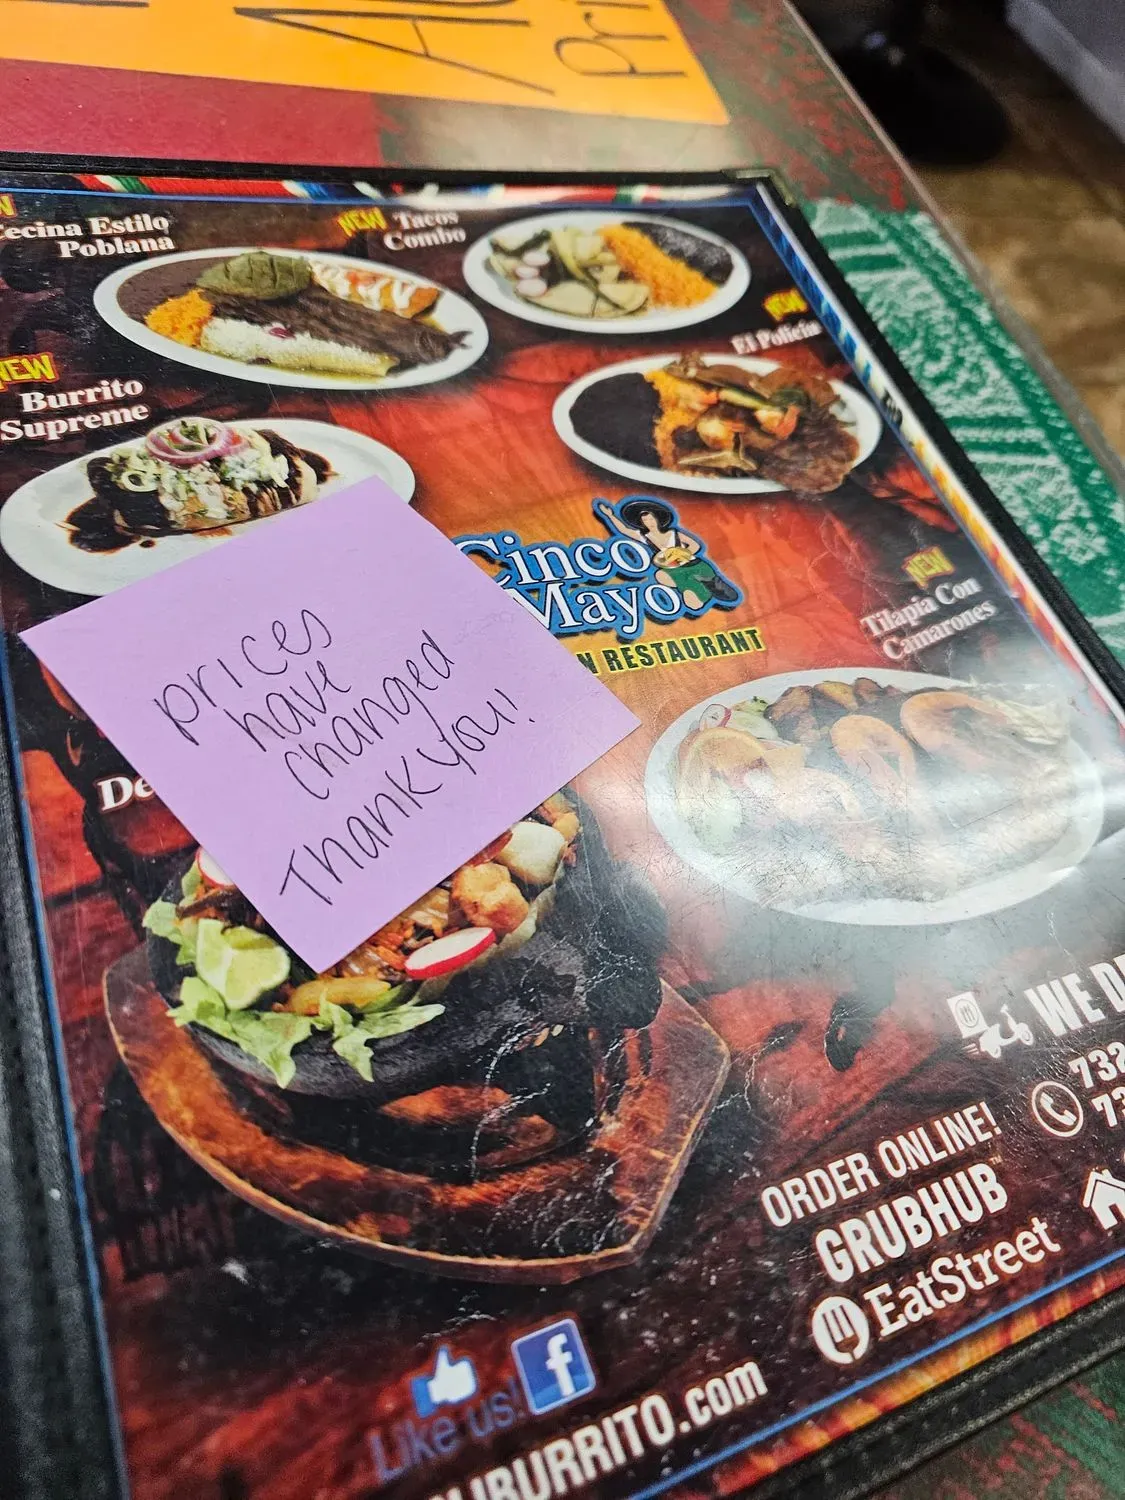 NEW
Cecina Estilo
Poblana
NEW Tacos
Combo
NEW
El Policia
NEW
Burrito
Supreme
Cinco
Mayo
RESTAURANT
NEW
Tilapia Con
Camarones
prices
have
changed
Thank you!
WE
732
ORDER ONLINE!
GRUBHUB™
EatStreet
Like us!
f
BURRITO.com